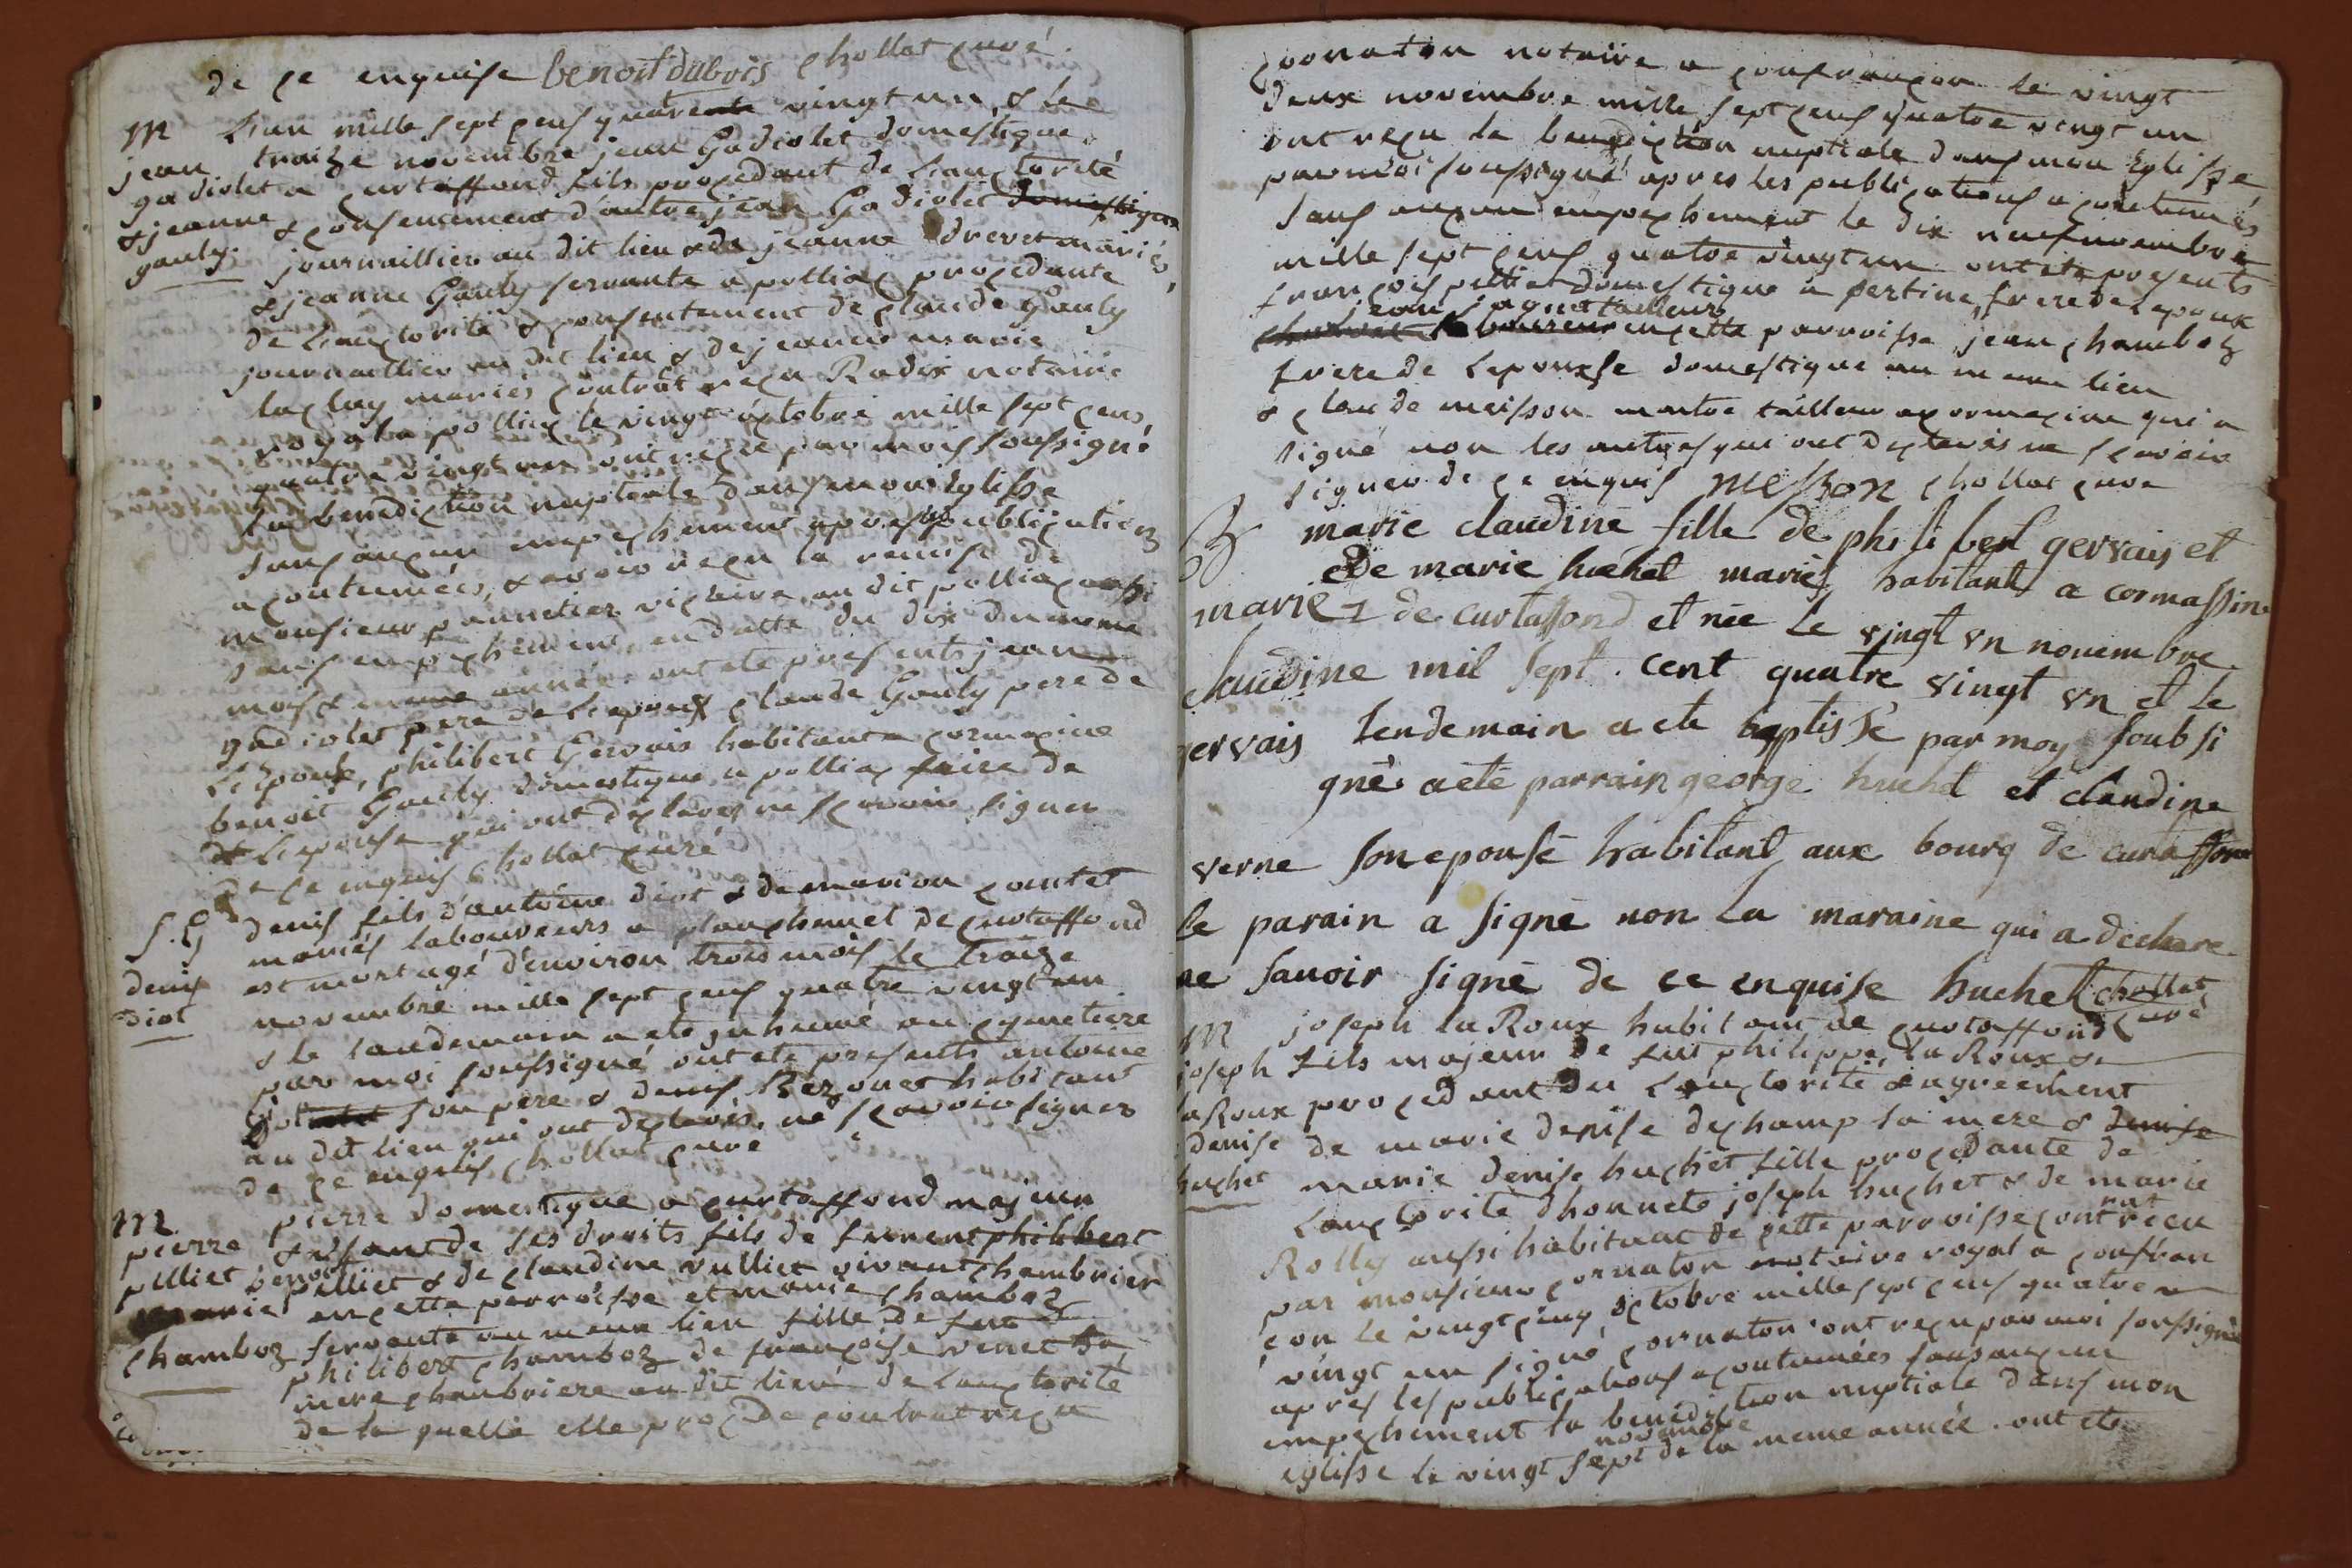 de ce enquise benoit dubois chollat curé.
M L'an mille sept cens quarente vingt un, & le
jean traize novembre jean Gadiolet domestique
gadiolet a curtaffond fils procedant de l'auctorité
& jeanne & consentement d'autre jean Gadiolet domestique
gauly. journaillier au dit lieu & de jeanne drevet mariés,
& jeanne Gauly servante a polliac procedante
de l'auctorité & consentement de claude Gauly
journaillier au dit lieu & de jeanne marie
laclay mariés contrat reçu Radix notaire
royal a polliac le vingt octobre mille sept cens
quatre vingt un ont reçu par mois soussigné
la benediction nuptiale dans mon Eglisse
sans aucun empechement apres publications
acoutumées, & avoir reçu la remise de
monsieur pannetier vicaire au dit polliac aussi
sans empechement, en datte du dix du meme
mois & meme année. ont ete presents jean
gadiolet pere de l'epoux claude Gauly pere de
l'Epouse, philibert Gervais habitant a cormacine
benoit Gauly domestique a polliac frere de
L'epouse qui ont declarés ne scavoir signer
de ce enquis chollat curé
S.G denis fils d'antoine diot & de marion coutet
mariés laboureurs a planchemel de curtaffond
denis est mort agé d'environ trois mois le traize
diot novembre mille sept cens quatre vingt un
& le landemain a ete inhumé au cymetiere
par moi soussigné ont ete presents antoine
diot son pere & denis habitant
au dit lieu qui ont declarés ne scavoir signer
de ce enquis chollat curé
M pierre domestique a curtaffond majeur
pierre & usant de ses droits fils de furent philibert
pilliet benoit pilliet & de claudine vulliet vivant chambrier
marie en cette parroisse et marie chamboz
chamboz servante au meme lieu fille de fut
philibert chamboz de françoise venet sa
mere chambriere au dit lieu de l'auctorité
de la quelle elle procede contrat reçu
cornaton notaire a confrançon le vingt
deux novembre mille sept cens quatre vingt un
ont reçu la benediction nuptiale dans mon Eglisse
par moi soussigné apres les publications acoutumés
sans aucun empechement le dix neuf novembre
mille sept cens quatre vingt un ont ete presents
françois pelliet domestique a pertine, frere de l'epoux
jean jagnet tailleur
laboureur en cette parroisse jean chamboz
frere de l'epouxse domestique au meme lieu
& claude meisson maitre tailleur a cormacine qui a
signé non les autres qui ont declarés ne scavoir
signer de ce enquis messon chollat curé
B marie claudine fille de philibert gervais et
de marie huchet mariés habitants a cormassine
marie de curtaffond et née le vingt un novembre
claudine mil sept cent quatre vingt un et le
gervais lendemain a ete baptissé par moy soubsi
gné. a été parrain george huchet et claudine
verne son epousé habitant aux bourg de curtaffond
le parain a signé non la maraine qui a declare
ne savoir signé de ce enquise huchet chollat curé
M joseph la Roux habitant de curtaffond
joseph fils majeur de fut philippe la Roux &
la Roux procedant du l'auctorité & agreement
denise de marie denise dechamp sa mere & denise
huchet marie denise huchet fille procedante de
l'auctorité d'honnete joseph huchet & de marie
Rolly aussi habitant de cette parroisse contrat recu
par monsieur cornaton notaire royal a confran
çon le vingt cinq octobre mille sept cens quatre
vingt un signé cornaton ont reçu par moi soussigné
apres les publications acoutumées sans aucun
empechement la benediction nuptiale dans mon
novembre
eglisse le vingt sept de la meme année. ont ete